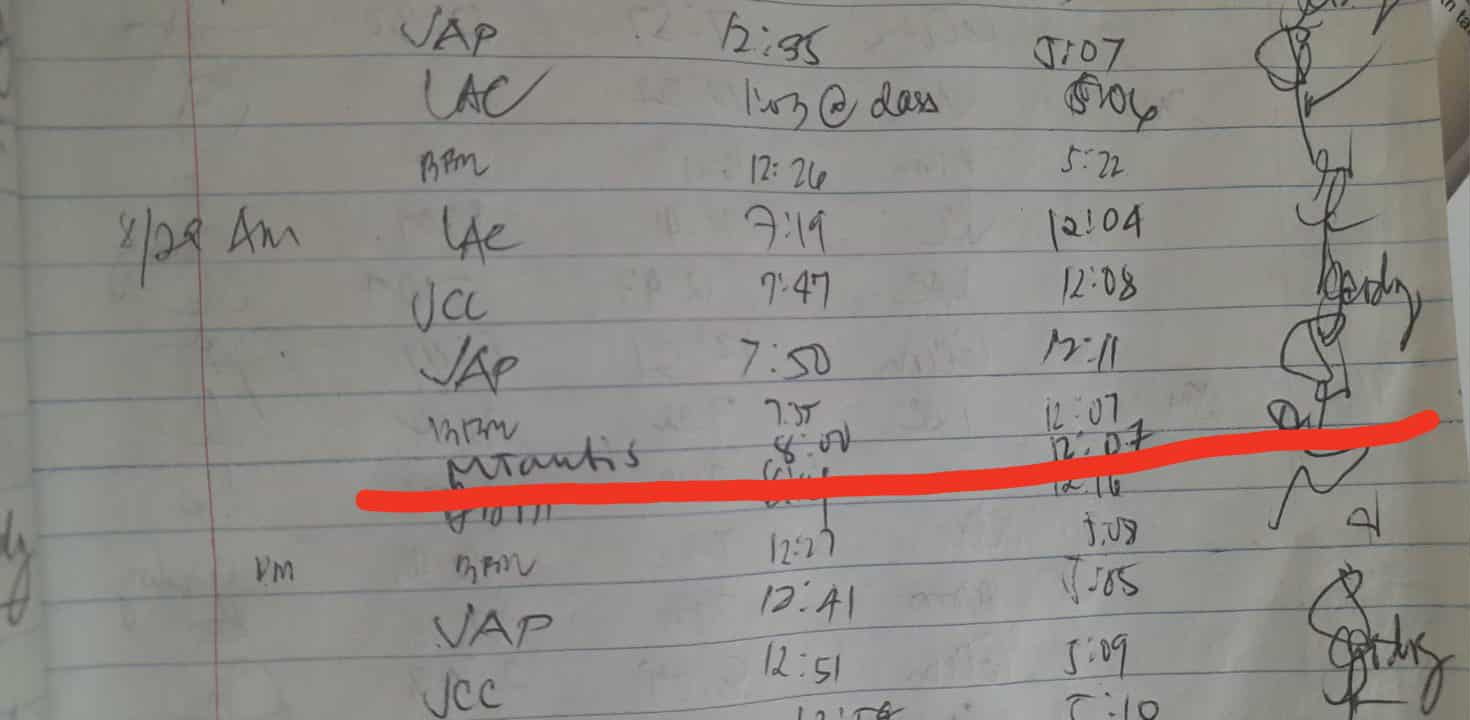 JAP 12:35 5:07
LAC 1:03 @ class 5:06
BBM 12:26 5:22
8/29 Am LAC 7:19 12:04
JCC 7:47 12:08
JAP 7:50 12:11
BBM 7:55 12:07
MTantis 8:00 12:07
12:16
pm BBM 12:27 5:08
JAP 12:41 5:05
JCC 12:51 5:09
5:10